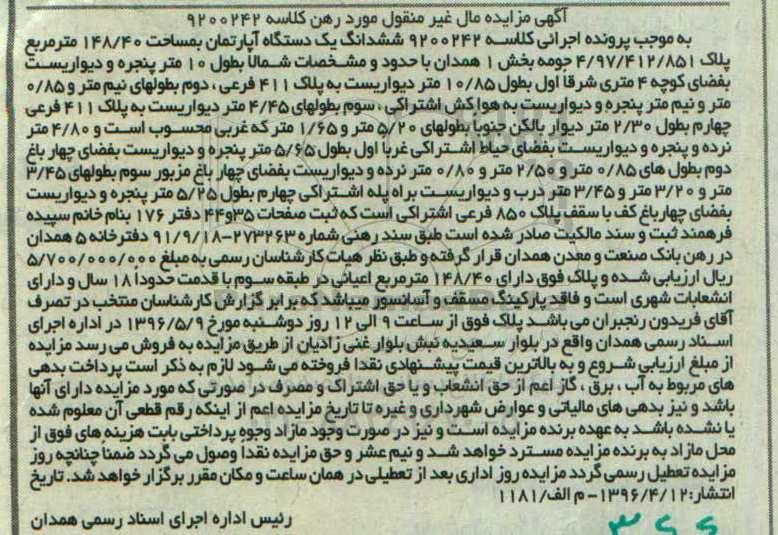 آگهی مزایده مال غیر منقول مورد رهن کلاسه ۹۲۰۰۲۴۲
به موجب پرونده اجرائی کلاسه ۹۲۰۰۲۴۲ ششدانگ یک دستگاه آپارتمان بمساحت ۱۴۸/۴۰ مترمربع
پلاک ۴/۹۷/۴۱۲/۸۵۱ حومه بخش ۱ همدان با حدود و مشخصات شمالا بطول ۱۰ متر پنجره و دیواریست
بفضای کوچه ۴ متری شرقا اول بطول ۱۰/۸۵ متر دیواریست به پلاک ۴۱۱ فرعی ، دوم بطولهای نیم متر و ۰/۸۵
متر و نیم متر پنجره و دیواریست به هوا کش اشتراکی ، سوم بطولهای ۴/۴۵ متر دیواریست به پلاک ۴۱۱ فرعی
چهارم بطول ۲/۳۰ متر دیوار بالکن جنوبا بطولهای ۵/۲۰ متر و ۱/۶۵ متر که غربی محسوب است و ۴/۸۰ متر
نرده و پنجره و دیواریست بفضای حیاط اشتراکی غربا اول بطول ۵/۶۵ متر پنجره و دیواریست بفضای چهار باغ
دوم بطول های ۰/۸۵ متر و ۲/۵۰ متر و ۰/۸۰ متر نرده و دیواریست بفضای چهار باغ مزبور سوم بطولهای ۳/۴۵
متر و ۳/۲۰ متر و ۳/۴۵ متر درب و دیواریست براه پله اشتراکی چهارم بطول ۵/۲۵ متر پنجره و دیواریست
بفضای چهارباغ کف با سقف پلاک ۸۵۰ فرعی اشتراکی است که ثبت صفحات ۳۵و۴۴ دفتر ۱۷۶ بنام خانم سپیده
فرهمند ثبت و سند مالکیت صادر شده است طبق سند رهنی شماره ۲۷۳۲۶۳-۹۱/۹/۱۸ دفترخانه ۵ همدان
در رهن بانک صنعت و معدن همدان قرار گرفته و طبق نظر هیات کارشناسان رسمی به مبلغ ۵/۷۰۰/۰۰۰/۰۰۰
ریال ارزیابی شده و پلاک فوق دارای ۱۴۸/۴۰ مترمربع اعیانی در طبقه سوم با قدمت حدوداً ۱۸ سال و دارای
انشعابات شهری است و فاقد پارکینگ مسقف و آسانسور میباشد که برابر گزارش کارشناسان منتخب در تصرف
آقای فریدون رنجبران می باشد پلاک فوق از ساعت ۹ الی ۱۲ روز دوشنبه مورخ ۱۳۹۶/۵/۹ در اداره اجرای
اسناد رسمی همدان واقع در بلوار سعیدیه نبش بلوار غنی زادیان از طریق مزایده به فروش می رسد مزایده
از مبلغ ارزیابی شروع و به بالاترین قیمت پیشنهادی نقدا فروخته می شود لازم به ذکر است پرداخت بدهی
های مربوط به آب ، برق ، گاز اعم از حق انشعاب و یا حق اشتراک و مصرف در صورتی که مورد مزایده دارای آنها
باشد و نیز بدهی های مالیاتی و عوارض شهرداری و غیره تا تاریخ مزایده اعم از اینکه رقم قطعی آن معلوم شده
یا نشده باشد به عهده برنده مزایده است و نیز در صورت وجود مازاد وجوه پرداختی بابت هزینه های فوق از
محل مازاد به برنده مزایده مسترد خواهد شد و نیم عشر و حق مزایده نقدا وصول می گردد ضمنا چنانچه روز
مزایده تعطیل رسمی گردد مزایده روز اداری بعد از تعطیلی در همان ساعت و مکان مقرر برگزار خواهد شد. تاریخ
انتشار: ۱۳۹۶/۴/۱۲- م الف/۱۱۸۱
رئیس اداره اجرای اسناد رسمی همدان